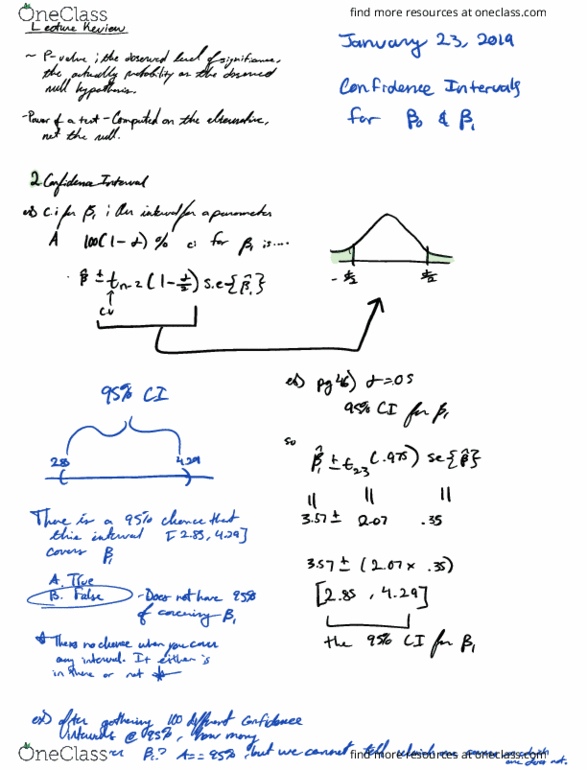 OneClass
find more resources at oneclass.com
Lecture Review
January 23, 2019
~ P-value ; the observed level of significance,
the actually probability on the observed
null hypothesis.
Confidence Intervals
for β₀ & β₁
- Power of a test - Computed on the alternative,
not the null.
2 Confidence Interval
C.i for β₁ ; An interval for a parameter
A 100(1-α)% ci for β₁ is....
β̂ ± t n-2 (1-α/2) s.e{β̂₁}
cv
-α/2 α/2
ex) pg 46) α=.05
95% CI for β₁
95% CI
so
β̂₁ ± t₂₃(.975) se{β̂}
2.85 4.29
3.57 ± 2.07 .35
There is a 95% chance that
this interval [2.85, 4.29]
covers β₁
3.57 ± (2.07 x .35)
A. True
B. False - Does not have 95%
of covering β₁
[2.85, 4.29]
the 95% CI for β₁
* Theres no chance when you cover
any interval. It either is
in there or not *
ex) after gathering 100 different confidence
intervals @ 95%, how many
β₁? A== 95%, but we cannot tell
OneClass
find more resources at oneclass.com
one does not.